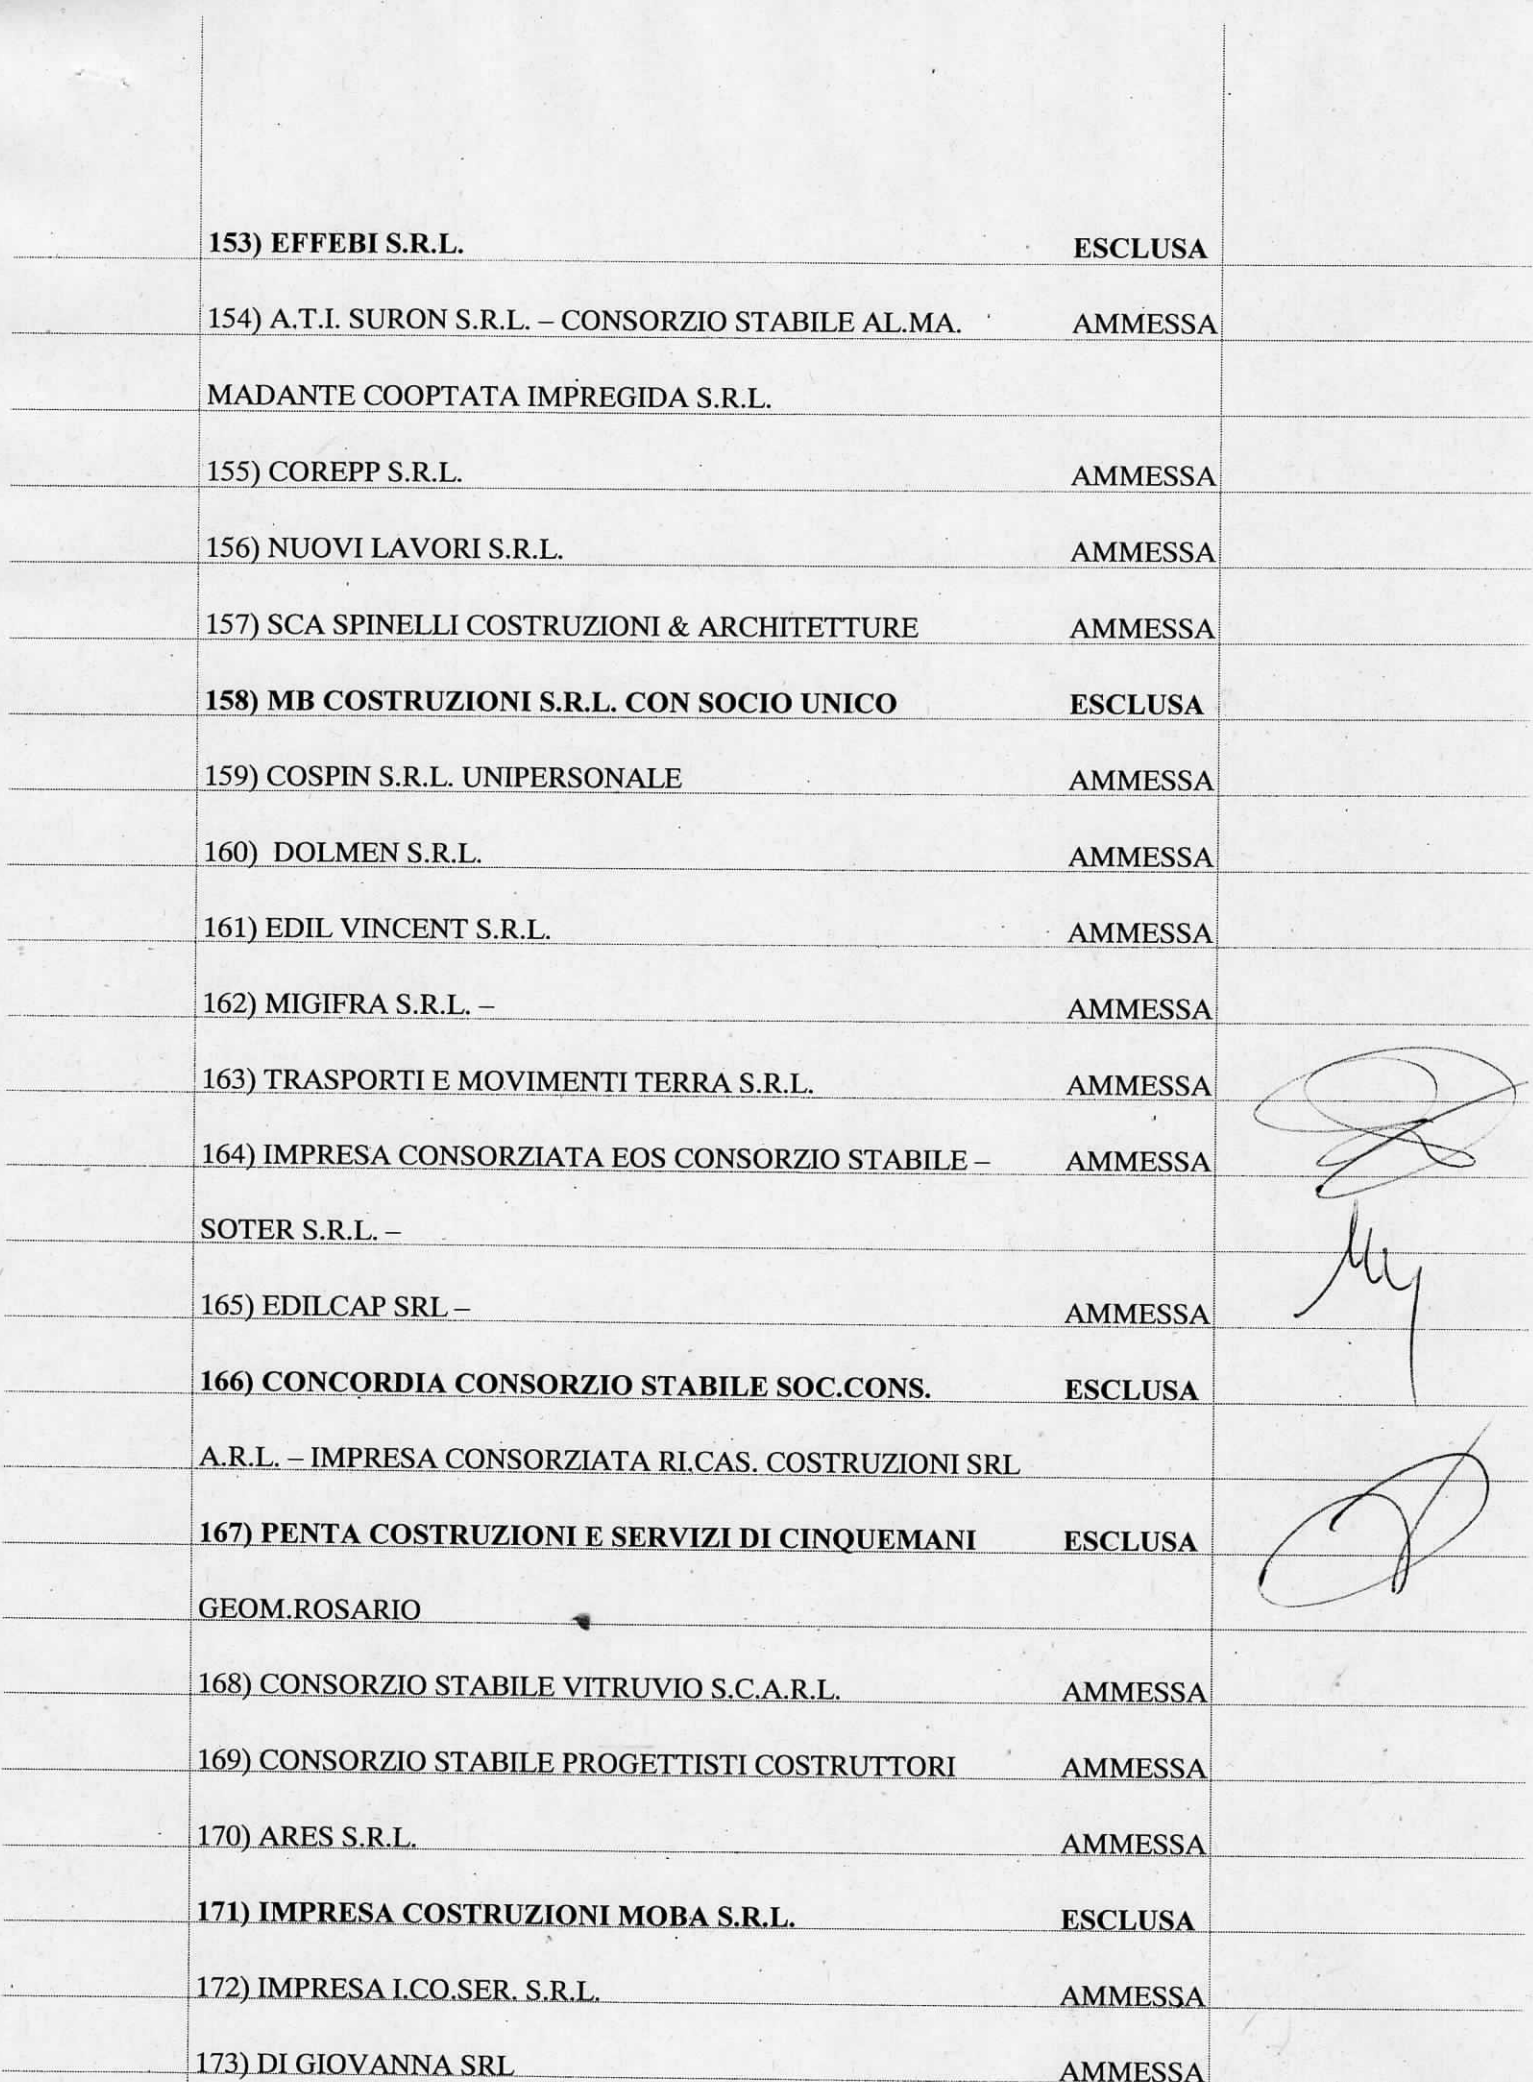 153) EFFEBI S.R.L. ESCLUSA
154) A.T.I. SURON S.R.L. – CONSORZIO STABILE AL.MA. AMMESSA
MADANTE COOPTATA IMPREGIDA S.R.L.
155) COREPP S.R.L. AMMESSA
156) NUOVI LAVORI S.R.L. AMMESSA
157) SCA SPINELLI COSTRUZIONI & ARCHITETTURE AMMESSA
158) MB COSTRUZIONI S.R.L. CON SOCIO UNICO ESCLUSA
159) COSPIN S.R.L. UNIPERSONALE AMMESSA
160) DOLMEN S.R.L. AMMESSA
161) EDIL VINCENT S.R.L. AMMESSA
162) MIGIFRA S.R.L. – AMMESSA
163) TRASPORTI E MOVIMENTI TERRA S.R.L. AMMESSA
164) IMPRESA CONSORZIATA EOS CONSORZIO STABILE – AMMESSA
SOTER S.R.L. –
165) EDILCAP SRL – AMMESSA
166) CONCORDIA CONSORZIO STABILE SOC.CONS. ESCLUSA
A.R.L. – IMPRESA CONSORZIATA RI.CAS. COSTRUZIONI SRL
167) PENTA COSTRUZIONI E SERVIZI DI CINQUEMANI ESCLUSA
GEOM.ROSARIO
168) CONSORZIO STABILE VITRUVIO S.C.A.R.L. AMMESSA
169) CONSORZIO STABILE PROGETTISTI COSTRUTTORI AMMESSA
170) ARES S.R.L. AMMESSA
171) IMPRESA COSTRUZIONI MOBA S.R.L. ESCLUSA
172) IMPRESA I.CO.SER. S.R.L. AMMESSA
173) DI GIOVANNA SRL AMMESSA